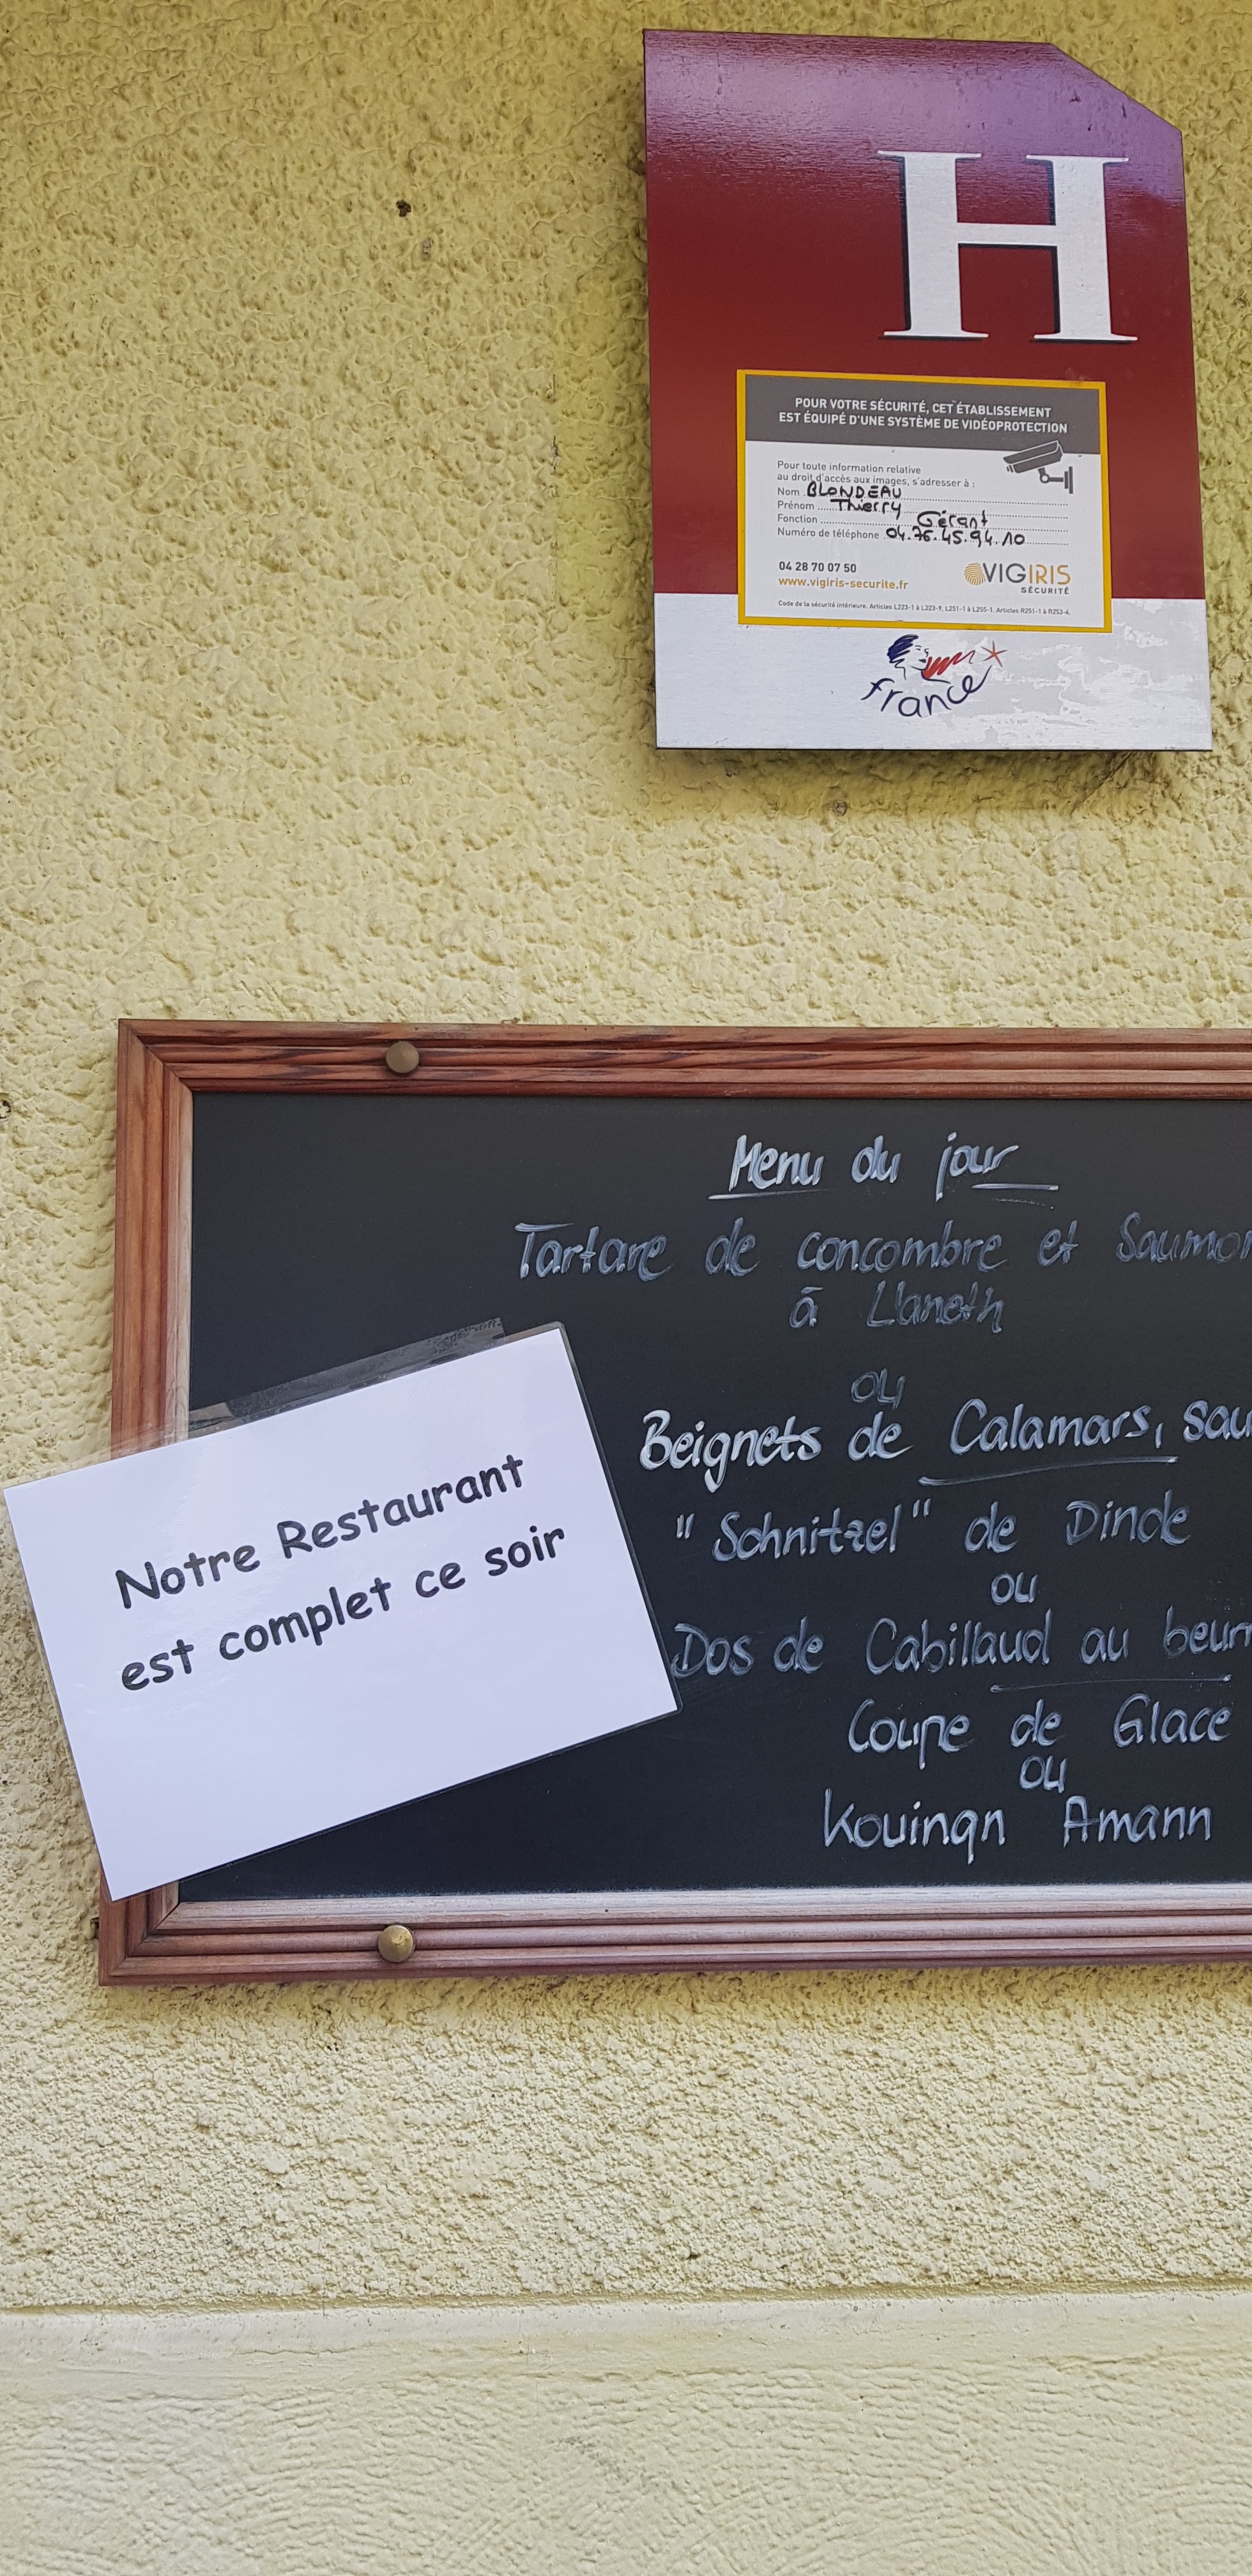 H
POUR VOTRE SÉCURITÉ, CET ÉTABLISSEMENT
EST ÉQUIPÉ D'UNE SYSTÈME DE VIDÉOPROTECTION
Pour toute information relative
au droit d'accès aux images, s'adresser à :
Nom BLONDEAU
Prénom Thierry
Fonction Gérant
Numéro de téléphone 04.76.45.94.10
04 28 70 07 50
www.vigiris-securite.fr
VIGIRIS
SÉCURITÉ
Code de la sécurité intérieure. Articles L223-1 à L223-9, L251-1 à L255-1. Articles R251-1 à R253-4.
france
Menu du jour
Tartare de concombre et Saumon
à L'aneth
ou
Beignets de Calamars, sau
"Schnitzel" de Dinde
ou
Dos de Cabillaud au beurr
Coupe de Glace
ou
Kouingn Amann
Notre Restaurant
est complet ce soir